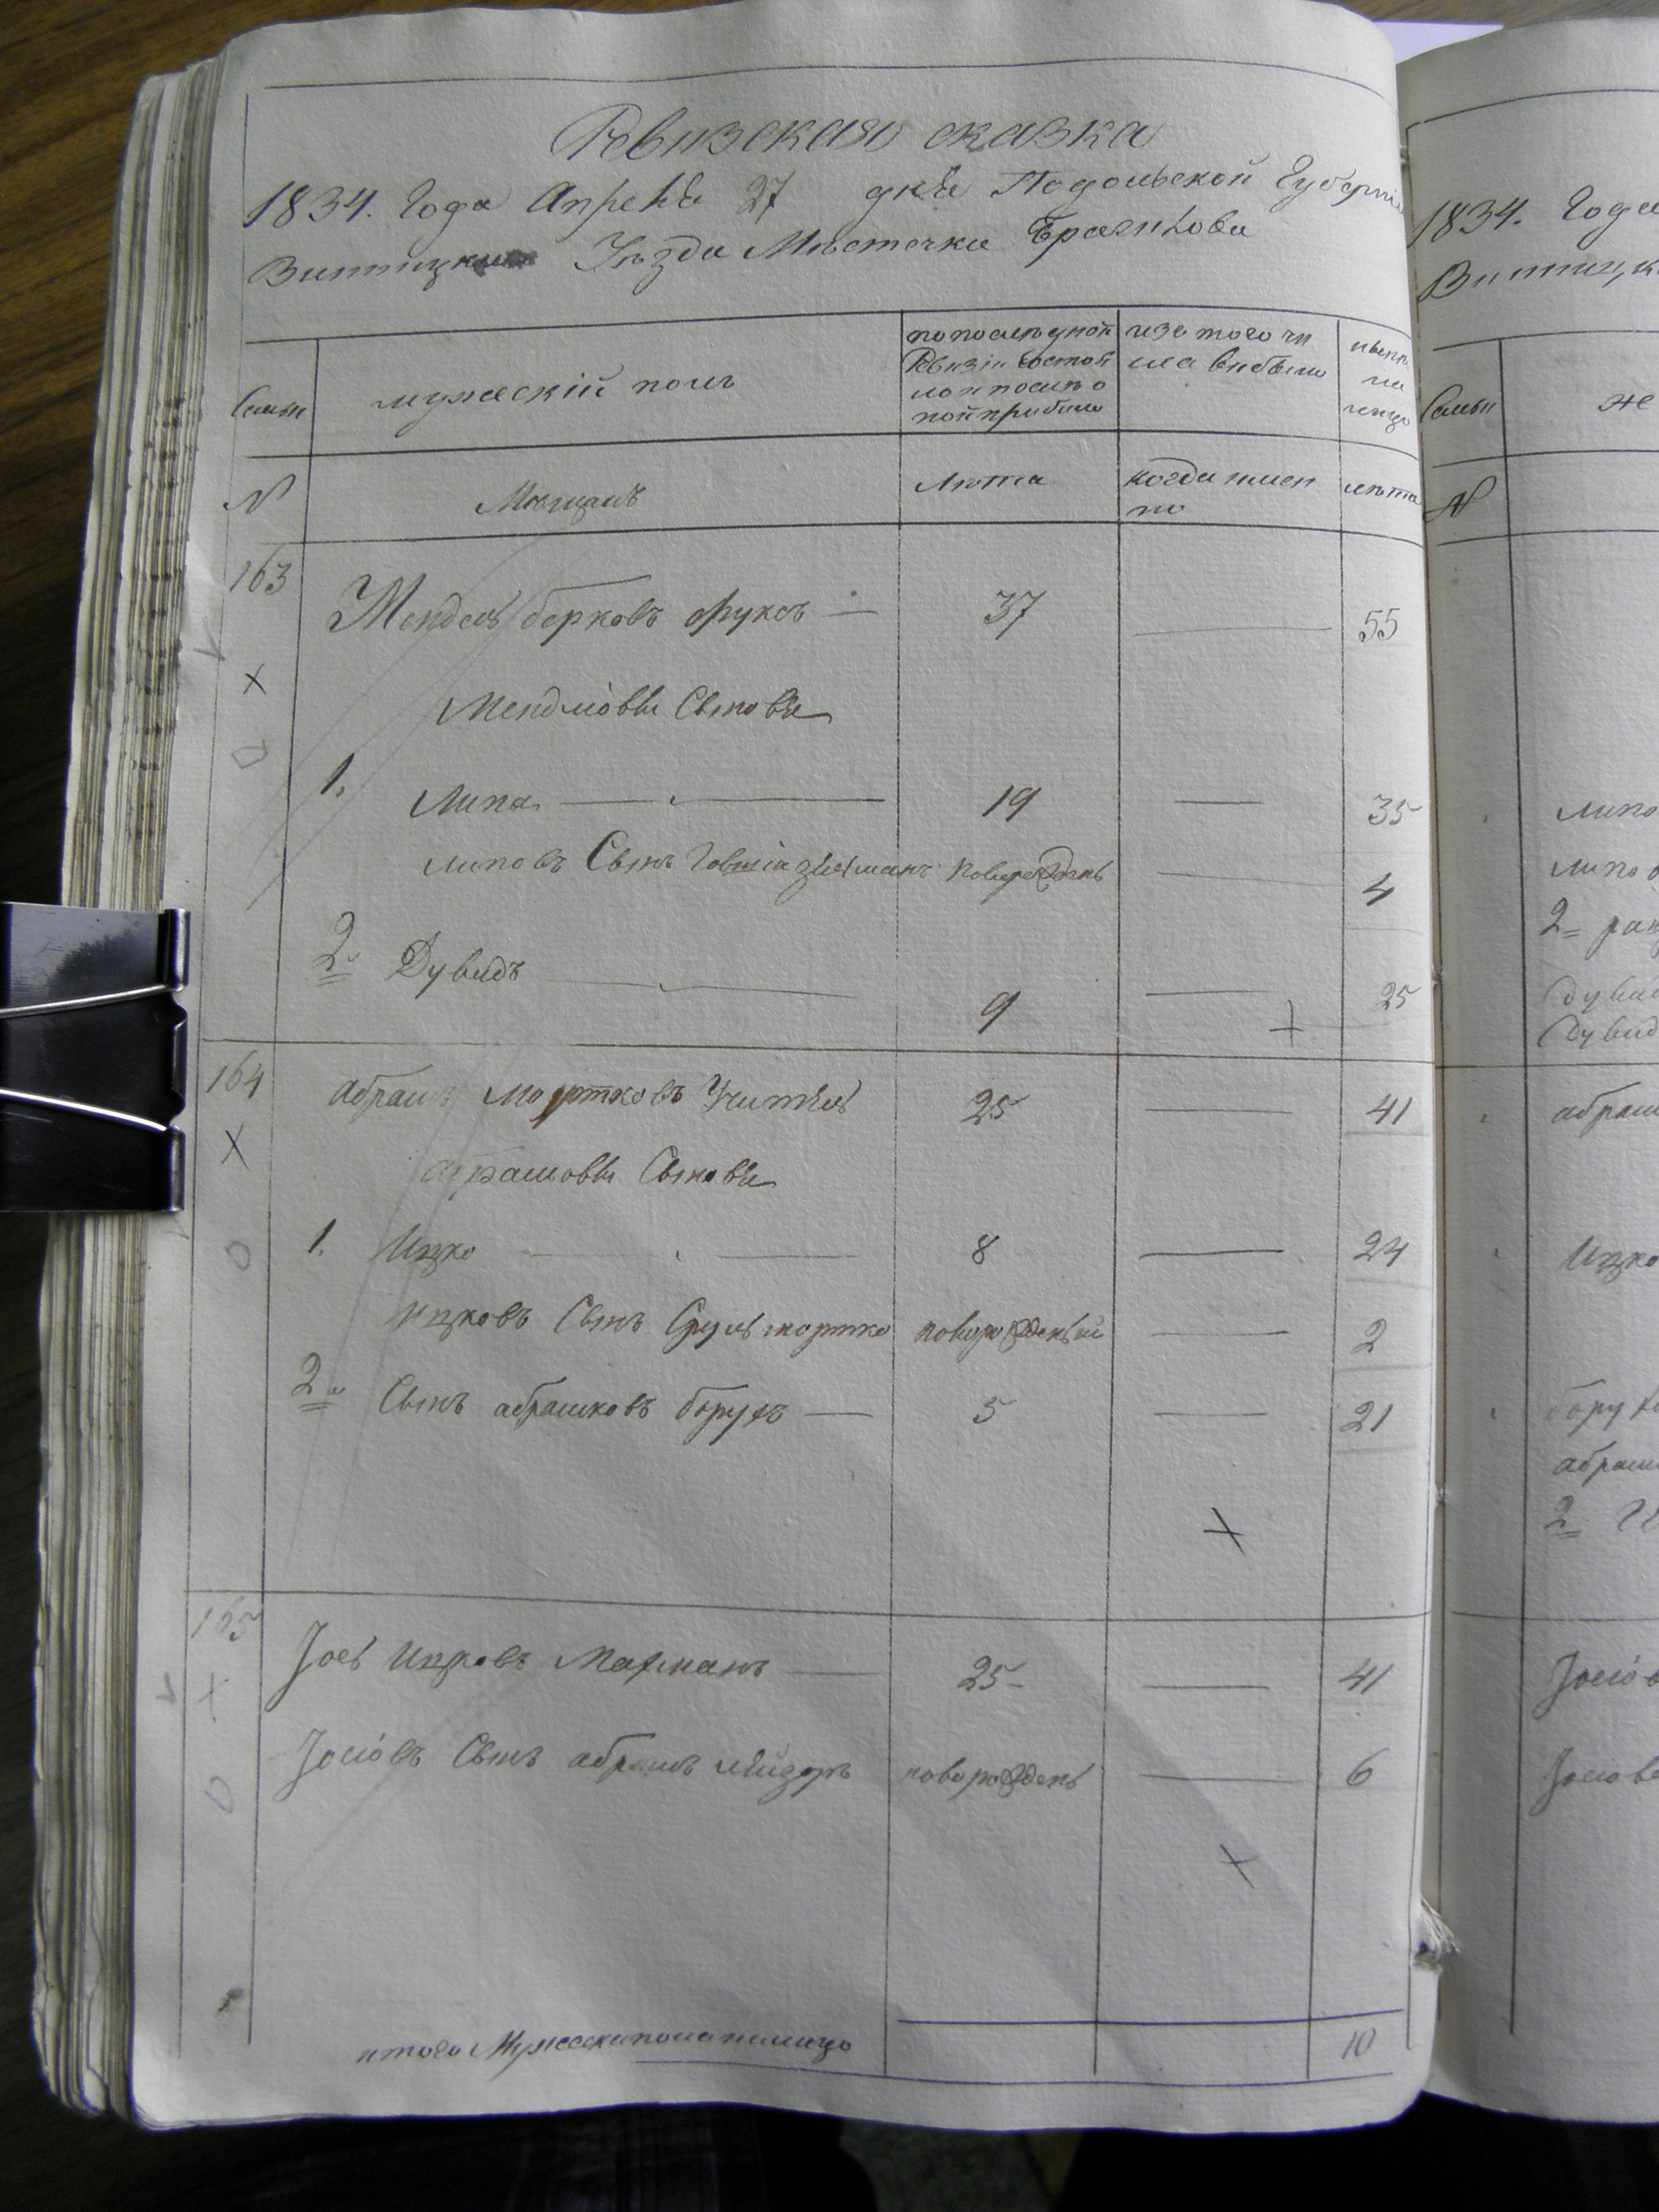 Ревизская сказка
1834. Года Апреля 27 дня Подольской Губерніи
Винницка Уѣзда Мѣстечка Браилова
Семьи
мужескій полъ
по послѣдной
Ревизіи состоя
ло и послѣ о
ной прибыло
изъ того чи
сла выбыло
нынѣ
на
лицо
N
Мѣщанъ
Лѣта
когда имен
но
лѣта
163
Мендель берковъ фуксъ 37 55
Мендліовы Сынове
1. Липа 19 35
липовъ Сынъ новорождень 4
2й Дувидъ 9 25
164
абрамъ Мортковъ Учитель 25 41
абрамовы Сынове
1. Ицко 8 24
ицковъ Сынъ Сруль мортко новорожденый 2
2й Сынъ абрамковъ борухъ 5 21
165
Јось Ицковъ Махманъ 25 41
Јосіовъ Сынъ абрамъ лейзоръ новорождень 6
итого Мужеска пола налицо 10
1834. Года
Винницк
Семьи
же
N
липо
липо
2
дувид
Дувид
абрам
Ицко
бору
абрам
2
Јосіов
Јосіов